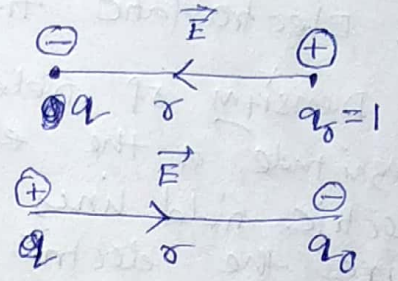 E
⊖ ⊕
q r q₀=1
E
⊕ ⊖
q r q₀